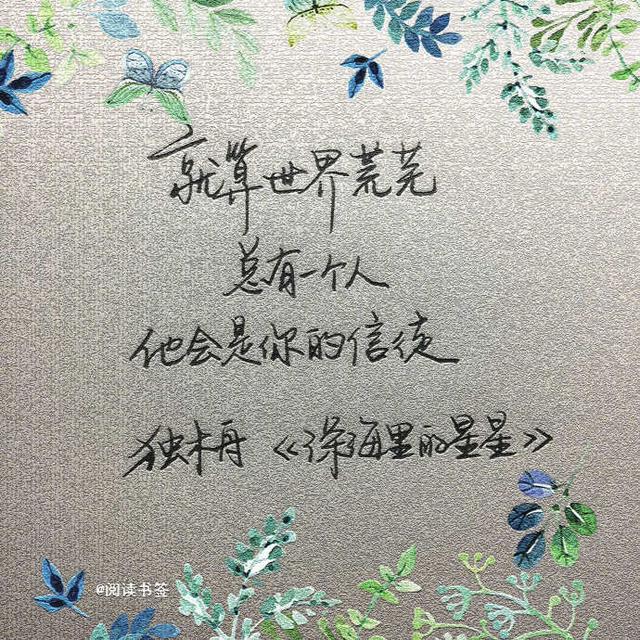 就算世界荒芜
总有一个人
他会是你的信徒
独木舟 《深海里的星星》
@阅读书签